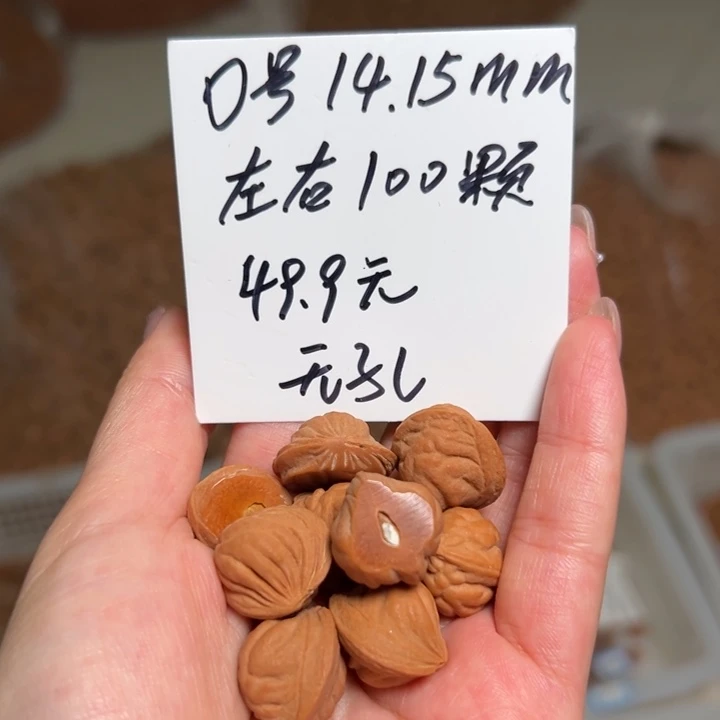 0号 14.15mm
左右100颗
49.9元
无孔